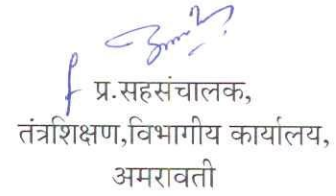 प्र.सहसंचालक,
तंत्रशिक्षण,विभागीय कार्यालय,
अमरावती